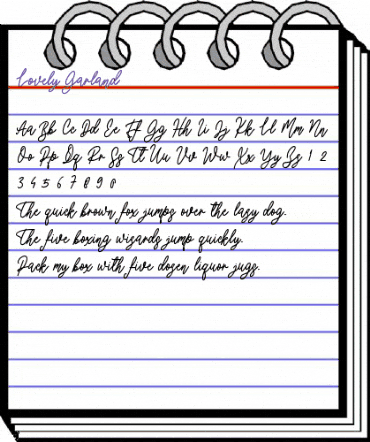 Lovely Garland
Aa Bb Cc Dd Ee Ff Gg Hh Ii Jj Kk Ll Mm Nn
Oo Pp Qq Rr Ss Tt Uu Vv Ww Xx Yy Zz 1 2
3 4 5 6 7 8 9 0
The quick brown fox jumps over the lazy dog.
The five boxing wizards jump quickly.
Pack my box with five dozen liquor jugs.